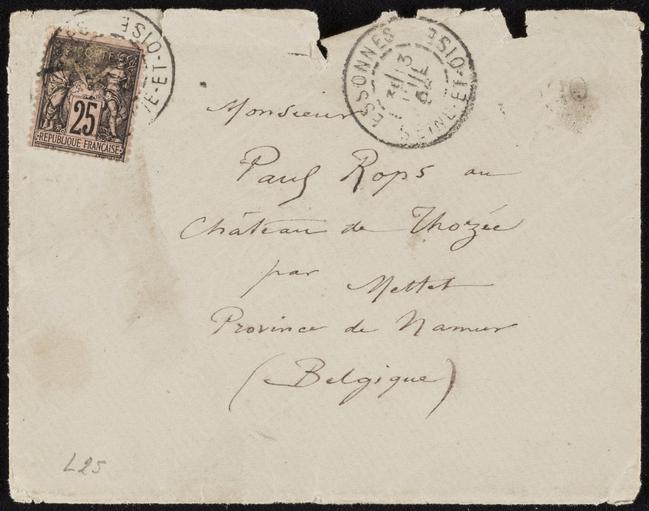 25
REPUBLIQUE FRANÇAISE
ESSONNES
SEINE-ET-OISE
Monsieur
Paul Rops au
Château de Thozée
par Mettet
Province de Namur
(Belgique)
L25